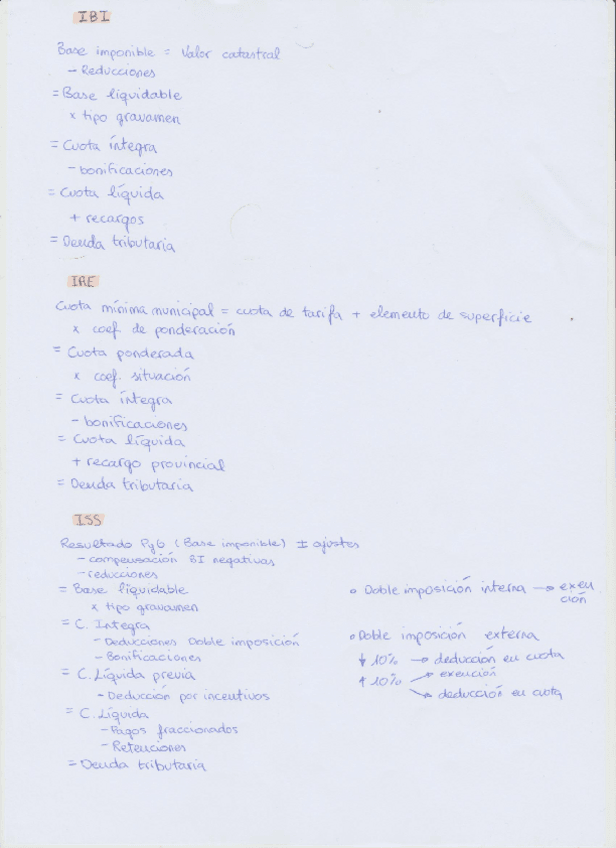 IBI
Base imponible = Valor catastral
- Reducciones
= Base liquidable
x tipo gravamen
= Cuota íntegra
- bonificaciones
= Cuota líquida
+ recargos
= Deuda tributaria
IAE
Cuota mínima municipal = cuota de tarifa + elemento de superficie
x coef. de ponderación
= Cuota ponderada
x coef. situación
= Cuota íntegra
- bonificaciones
= Cuota líquida
+ recargo provincial
= Deuda tributaria
ISS
Resultado PyG (Base imponible) ± ajustes
- compensación BI negativas
- reducciones
= Base liquidable
x tipo gravamen
= C. Íntegra
- Deducciones Doble imposición
- Bonificaciones
= C. Líquida previa
- Deducción por incentivos
= C. Líquida
- Pagos fraccionados
- Retenciones
= Deuda tributaria
• Doble imposición interna → exen
ción
• Doble imposición externa
↓ 10% → deducción en cuota
↑ 10% → exención
→ deducción en cuota